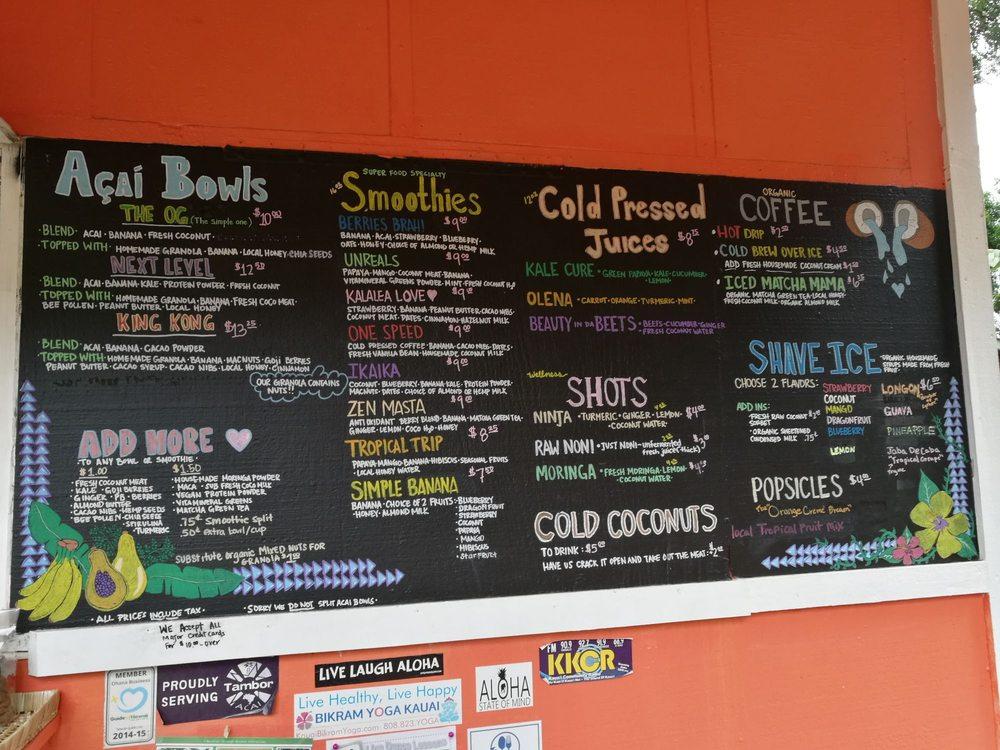 Açaí Bowls
THE OG (The simple one) $10
•BLEND• AÇAI • BANANA • FRESH COCONUT •
•TOPPED WITH• HOMEMADE GRANOLA • BANANA • LOCAL HONEY • CHIA SEEDS
NEXT LEVEL $12
•BLEND• AÇAI • BANANA • KALE • PROTEIN POWDER • FRESH COCONUT
•TOPPED WITH• HOMEMADE GRANOLA • BANANA • FRESH COCO MEAT •
BEE POLLEN • PEANUT BUTTER • LOCAL HONEY
KING KONG $13.25
BLEND • AÇAI • BANANA • CACAO POWDER
•TOPPED WITH• HOMEMADE GRANOLA • BANANA • MACNUTS • GOJI BERRIES
PEANUT BUTTER • CACAO SYRUP • CACAO NIBS • LOCAL HONEY • CINNAMON
OUR GRANOLA CONTAINS
NUTS!!
ADD MORE
•TO ANY BOWL OR SMOOTHIE•
$1.00
•FRESH COCONUT MEAT
•KALE • GOJI BERRIES
•GINGER • PB • BERRIES
•ALMOND BUTTER
•CACAO NIBS • HEMP SEEDS
•BEE POLLEN • CHIA SEED
•SPIRULINA
•TURMERIC
$1.50
•HOUSEMADE MORINGA POWDER
•MACA • SUB FRESH COCO MILK
•VEGAN PROTEIN POWDER
•VITAMINERAL GREENS
•MATCHA GREEN TEA
.75¢ smoothie split
.50¢ extra bowl/cup
SUBSTITUTE ORGANIC MIXED NUTS FOR
GRANOLA
•ALL PRICES INCLUDE TAX•
•SORRY WE DO NOT SPLIT AÇAI BOWLS•
WE Accept ALL
Major Credit Cards
For $10.00 - over
SUPER FOOD SPECIALTY
16oz Smoothies
BERRIES BRAH! $9.00
BANANA • AÇAI • STRAWBERRY • BLUEBERRY •
OATS • HONEY • CHOICE OF ALMOND OR HEMP MILK
UNREALS $9.00
PAPAYA • MANGO • COCONUT MEAT • BANANA •
VITAMINERAL GREENS POWDER • MINT • FRESH COCONUT H2O
KALALEA LOVE ♥ $9
STRAWBERRY • BANANA • PEANUT BUTTER • CACAO NIBS •
COCONUT MEAT • DATES • CINNAMON • HAZELNUT MILK
ONE SPEED $9.00
COLD PRESSED COFFEE • BANANA • CACAO NIBS • DATES •
FRESH VANILLA BEAN • HOUSEMADE COCONUT MILK
IKAIKA $9.00
COCONUT • BLUEBERRY • BANANA • KALE • PROTEIN POWDER •
MACNUTS • DATES • CHOICE OF ALMOND OR HEMP MILK
ZEN MASTA $9.00
ANTIOXIDANT BERRY BLEND • BANANA • MATCHA GREEN TEA •
GINGER • LEMON • COCO H2O • HONEY
TROPICAL TRIP $8.25
PAPAYA • MANGO • BANANA • HIBISCUS • SEASONAL FRUITS
•LOCAL HONEY WATER
SIMPLE BANANA $7.50
BANANA • CHOICE OF 2 FRUITS•
•HONEY • ALMOND MILK
•BLUEBERRY
•DRAGON FRUIT
•STRAWBERRY
•COCONUT
•PAPAYA
•MANGO
•HIBISCUS
•Star Fruit
12oz Cold Pressed
Juices $8.75
KALE CURE • GREEN PAPAYA • KALE • CUCUMBER •
LEMON•
OLENA • CARROT • ORANGE • TURMERIC • MINT •
BEAUTY IN DA BEETS • BEETS • CUCUMBER • GINGER
FRESH COCONUT WATER
wellness
SHOTS
NINJA • TURMERIC • GINGER • LEMON •
•COCONUT WATER•
RAW NONI • JUST NONI - unfermented
fresh juice (thick)
MORINGA • FRESH MORINGA • LEMON •
•COCONUT WATER•
COLD COCONUTS
TO DRINK: $5.00
HAVE US CRACK IT OPEN AND TAKE OUT THE MEAT: $2.00
ORGANIC
COFFEE
•HOT DRIP
•COLD BREW OVER ICE
ADD FRESH HOUSEMADE COCONUT CREAM
•ICED MATCHA MAMA
ORGANIC MATCHA GREEN TEA • LOCAL HONEY •
FRESH COCONUT MILK • ORGANIC ALMOND MILK
SHAVE ICE
•ORGANIC HOUSEMADE
SYRUPS MADE FROM FRESH
CHOOSE 2 FLAVORS:
ADD INS:
•FRESH RAW COCONUT
SORBET
•ORGANIC SWEETENED
CONDENSED MILK .75¢
STRAWBERRY
COCONUT
MANGO
DRAGONFRUIT
BLUEBERRY
LEMON
LONGON
GUAVA
PINEAPPLE
"Tropical Grape"
POPSICLES
"Orange Creme Dream"
local Tropical Fruit Mix
MEMBER
Ohana Business
2014-15
PROUDLY
SERVING
Tambor
AÇAÍ
LIVE LAUGH ALOHA
Live Healthy, Live Happy
BIKRAM YOGA KAUAI
BikramYoga.com 808.823.YOGA
ALOHA
STATE OF MIND
FM 90.9 92.7 91.9 88.9
KKCR